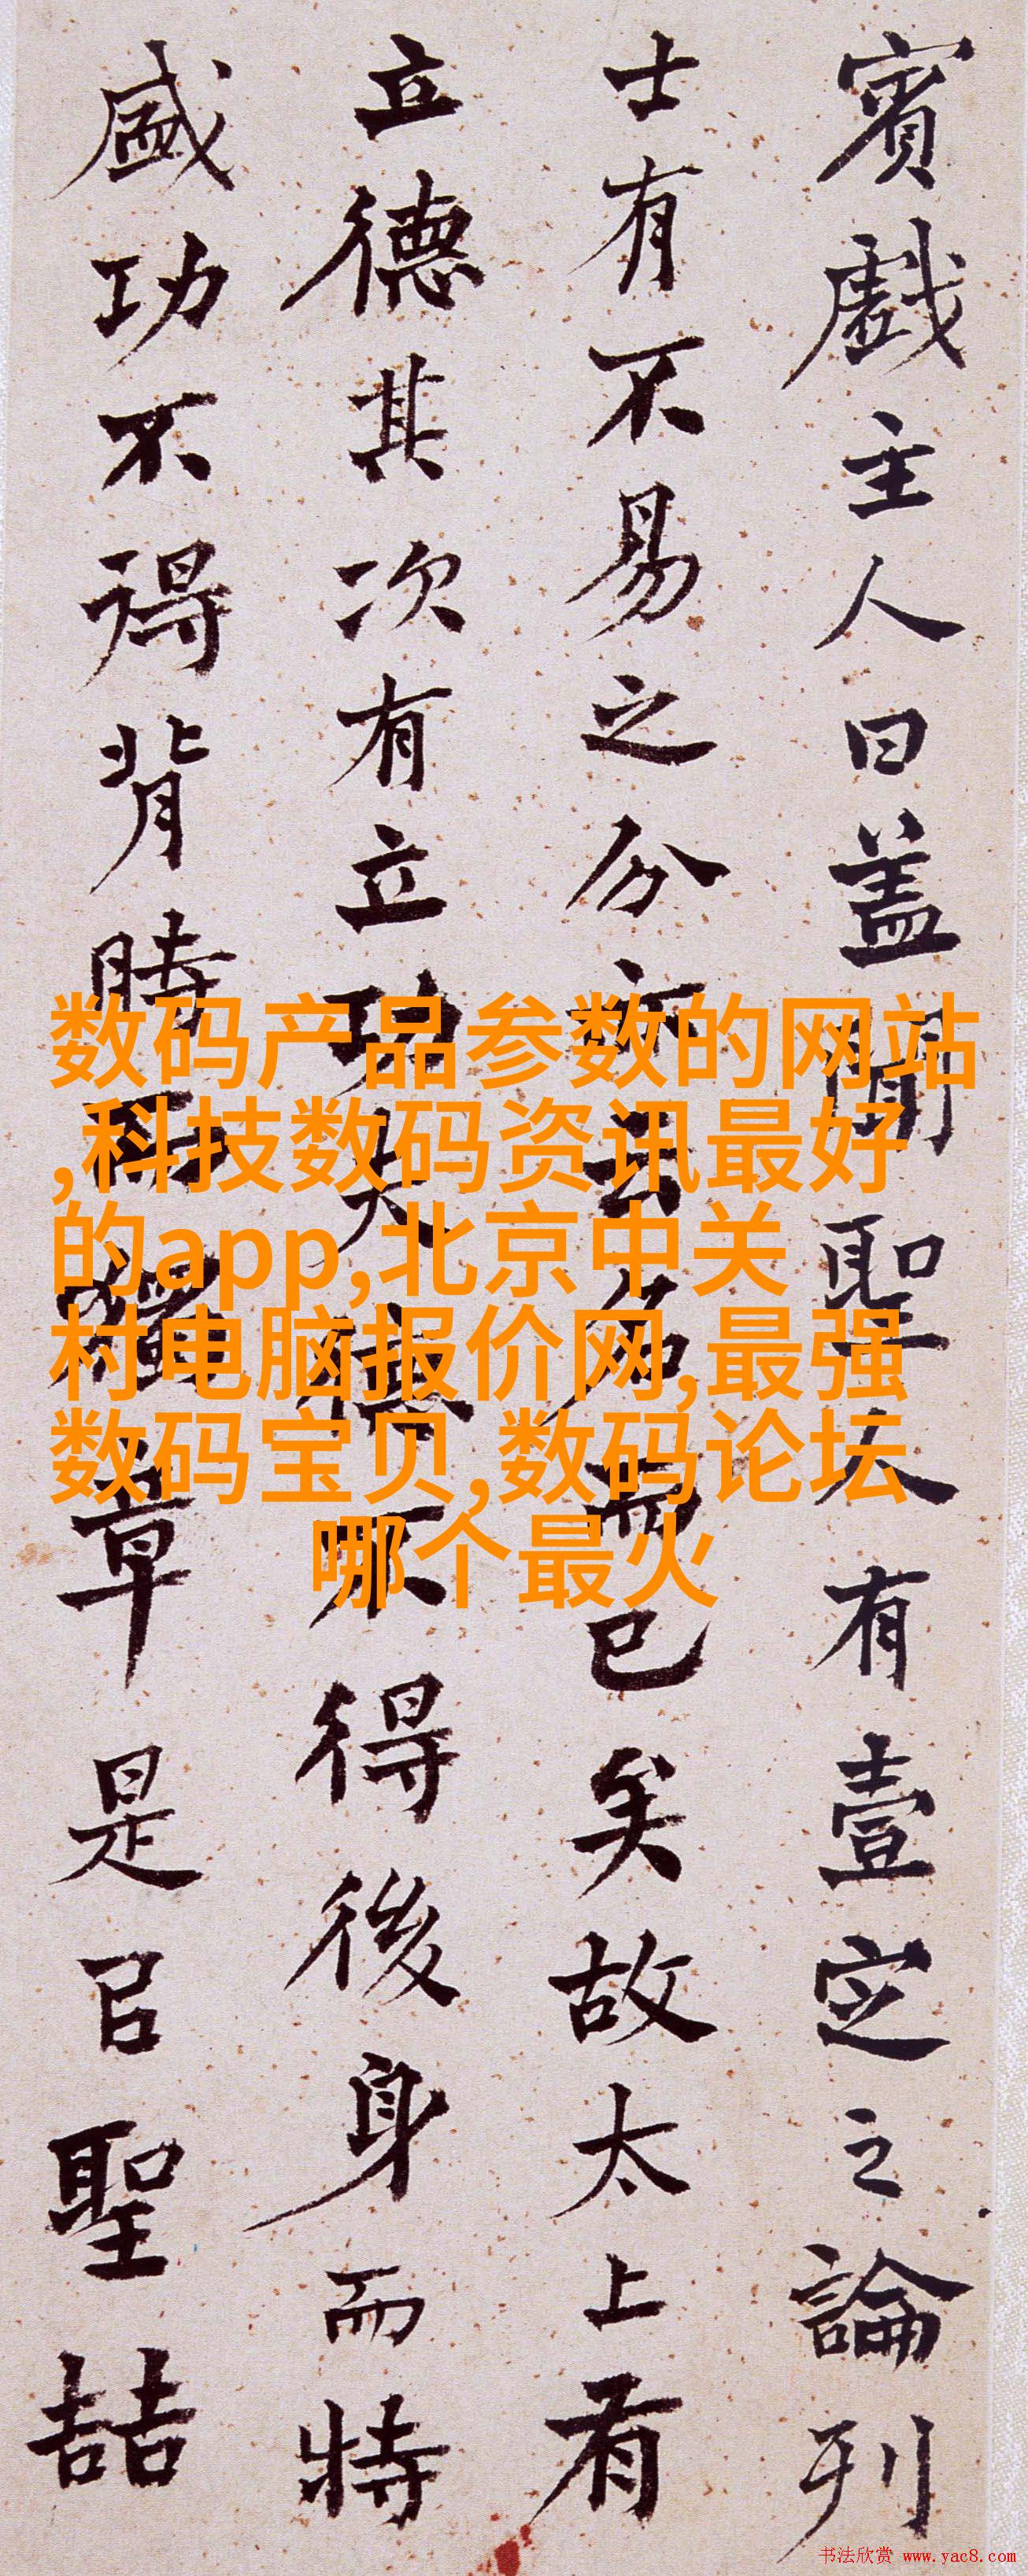 賓戲主人曰盖聞聖人有壹定之論列
士有不易之分亦云名而已矣故太上有
立德其次有立功夫德不得後身而特
盛功不得背時而獨章是㠯聖喆
数码产品参数的网站
,科技数码资讯最好
的app,北京中关
村电脑报价网,最强
数码宝贝,数码论坛
哪个最火
书法欣赏 www.yac8.com